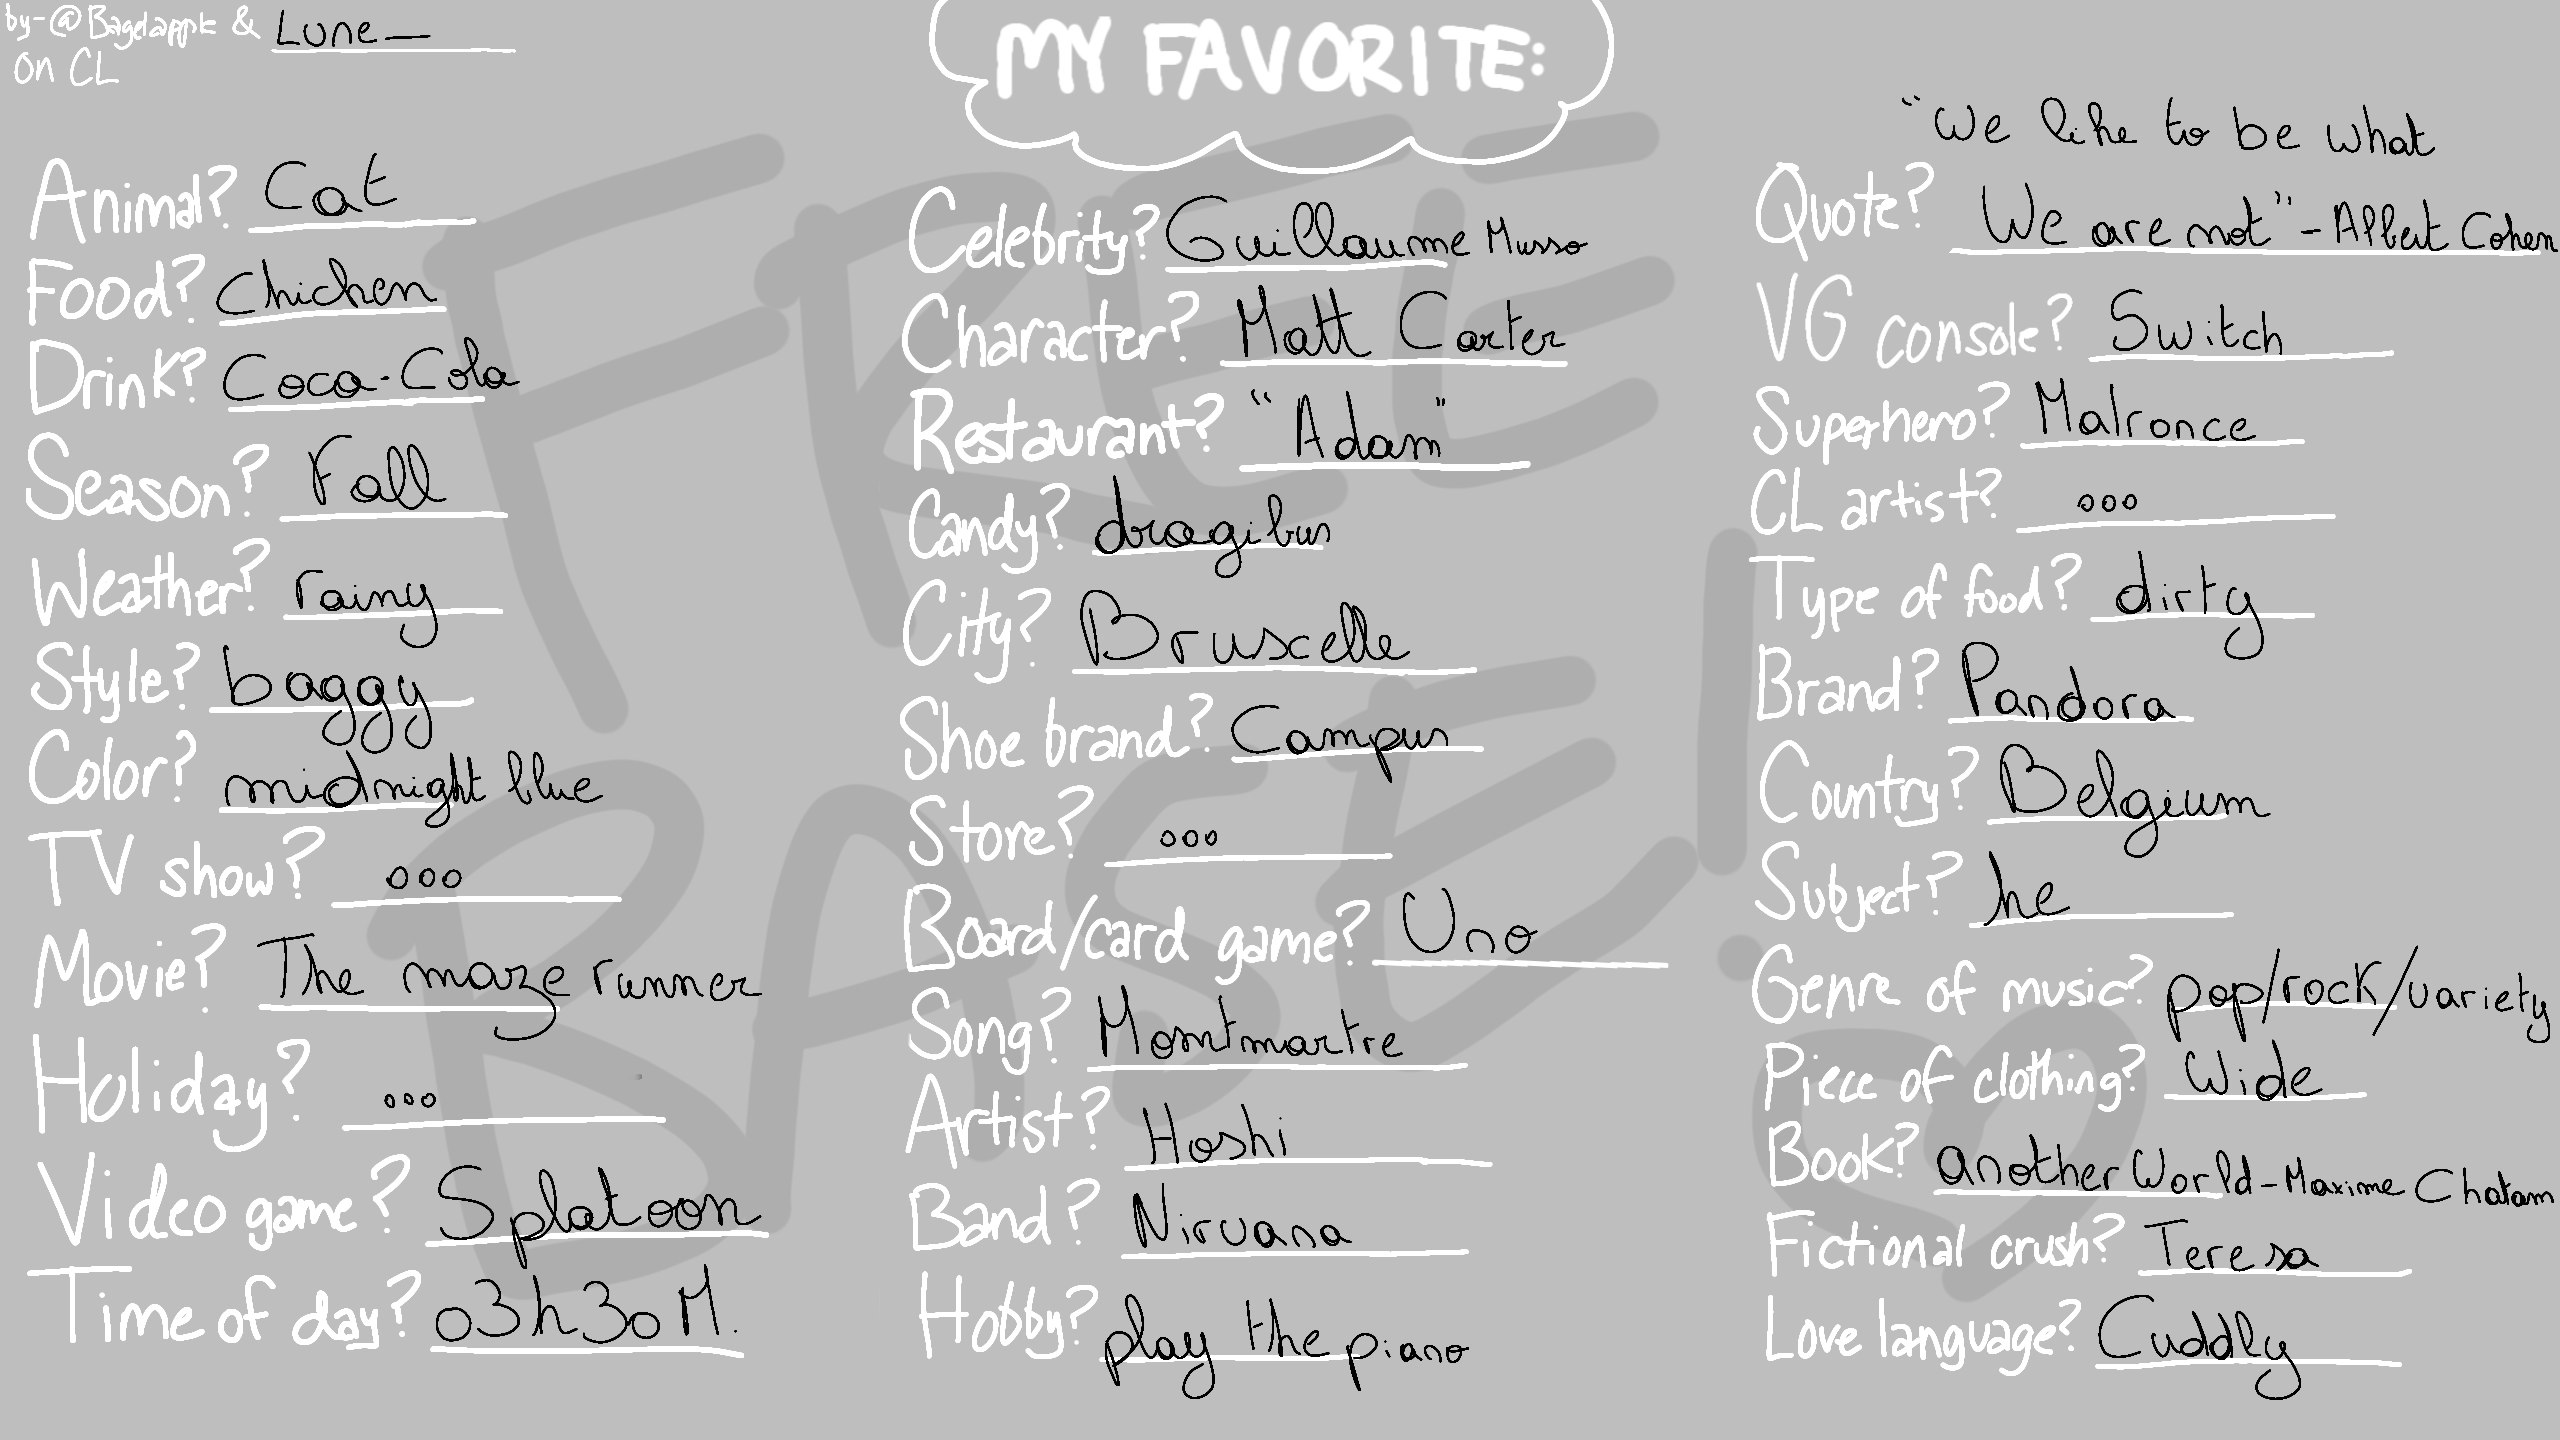 by-@Bagelapple & Lune_
on CL
MY FAVORITE:
FREE
BASE!
Animal? Cat
Food? Chicken
Drink? Coca-Cola
Season? Fall
Weather? rainy
Style? baggy
Color? midnight blue
TV show? ...
Movie? The maze runner
Holiday? ...
Video game? Splatoon
Time of day? 03h30 M.
Celebrity? Guillaume Musso
Character? Matt Carter
Restaurant? "Adam"
Candy? dragibus
City? Bruscelle
Shoe brand? Campus
Store? ...
Board/card game? Uno
Song? Montmartre
Artist? Hoshi
Band? Nirvana
Hobby? play the piano
"We like to be what
Quote? We are not" - Albert Cohen
VG console? Switch
Superhero? Malronce
CL artist? ...
Type of food? dirty
Brand? Pandora
Country? Belgium
Subject? he
Genre of music? pop/rock/variety
Piece of clothing? Wide
Book? another World - Maxime Chatam
Fictional crush? Teresa
Love language? Cuddly